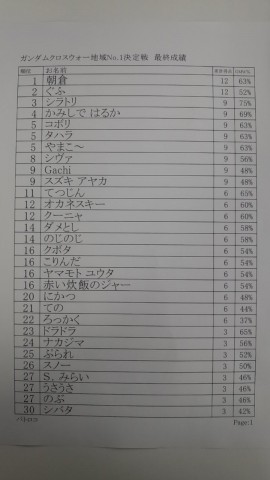 ガンダムクロスウォー地域No.1決定戦 最終成績
順位 お名前
1 朝倉 12 63%
2 ぐふ 12 52%
3 シラトリ 9 75%
4 かみしで はるか 9 69%
5 コボリ 9 63%
5 タハラ 9 63%
5 やまこ～ 9 63%
8 シヴァ 9 56%
9 Gachi 9 48%
9 スズキ アヤカ 9 48%
11 てつじん 6 65%
12 オカネスキー 6 60%
12 クーニャ 6 60%
14 ダメとし 6 58%
14 のじのじ 6 58%
16 クボタ 6 54%
16 こりんだ 6 54%
16 ヤマモト ユウタ 6 54%
16 赤い炊飯のジャー 6 54%
20 にかつ 6 48%
21 での 6 44%
22 ろっかく 6 37%
23 ドラドラ 3 65%
24 ナカジマ 3 56%
25 ぶられ 3 52%
26 スノー 3 50%
27 S．みらい 3 46%
27 うさうさ 3 46%
27 のぶ 3 46%
30 シバタ 3 42%
Page:1